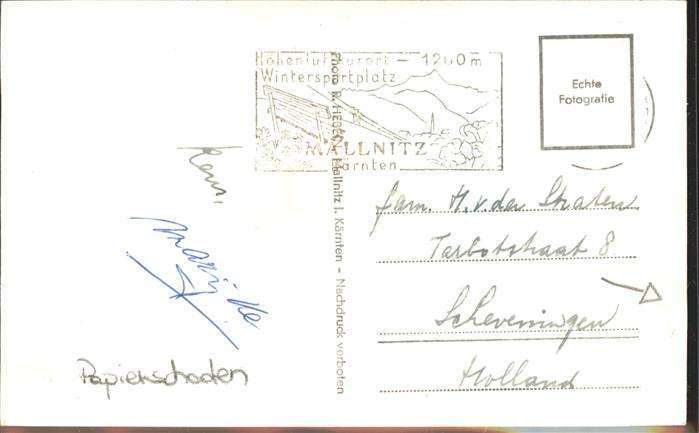 Höhenluftkurort - 1200m
Wintersportplatz
MALLNITZ
Kärnten
Echte
Fotografie
Photo R. HEBEN, Mallnitz i. Kärnten - Nachdruck verboten
Marijke
Papierschaden
fam. H. v. der Straten
Tarbotstraat 8
Scheveningen
Holland